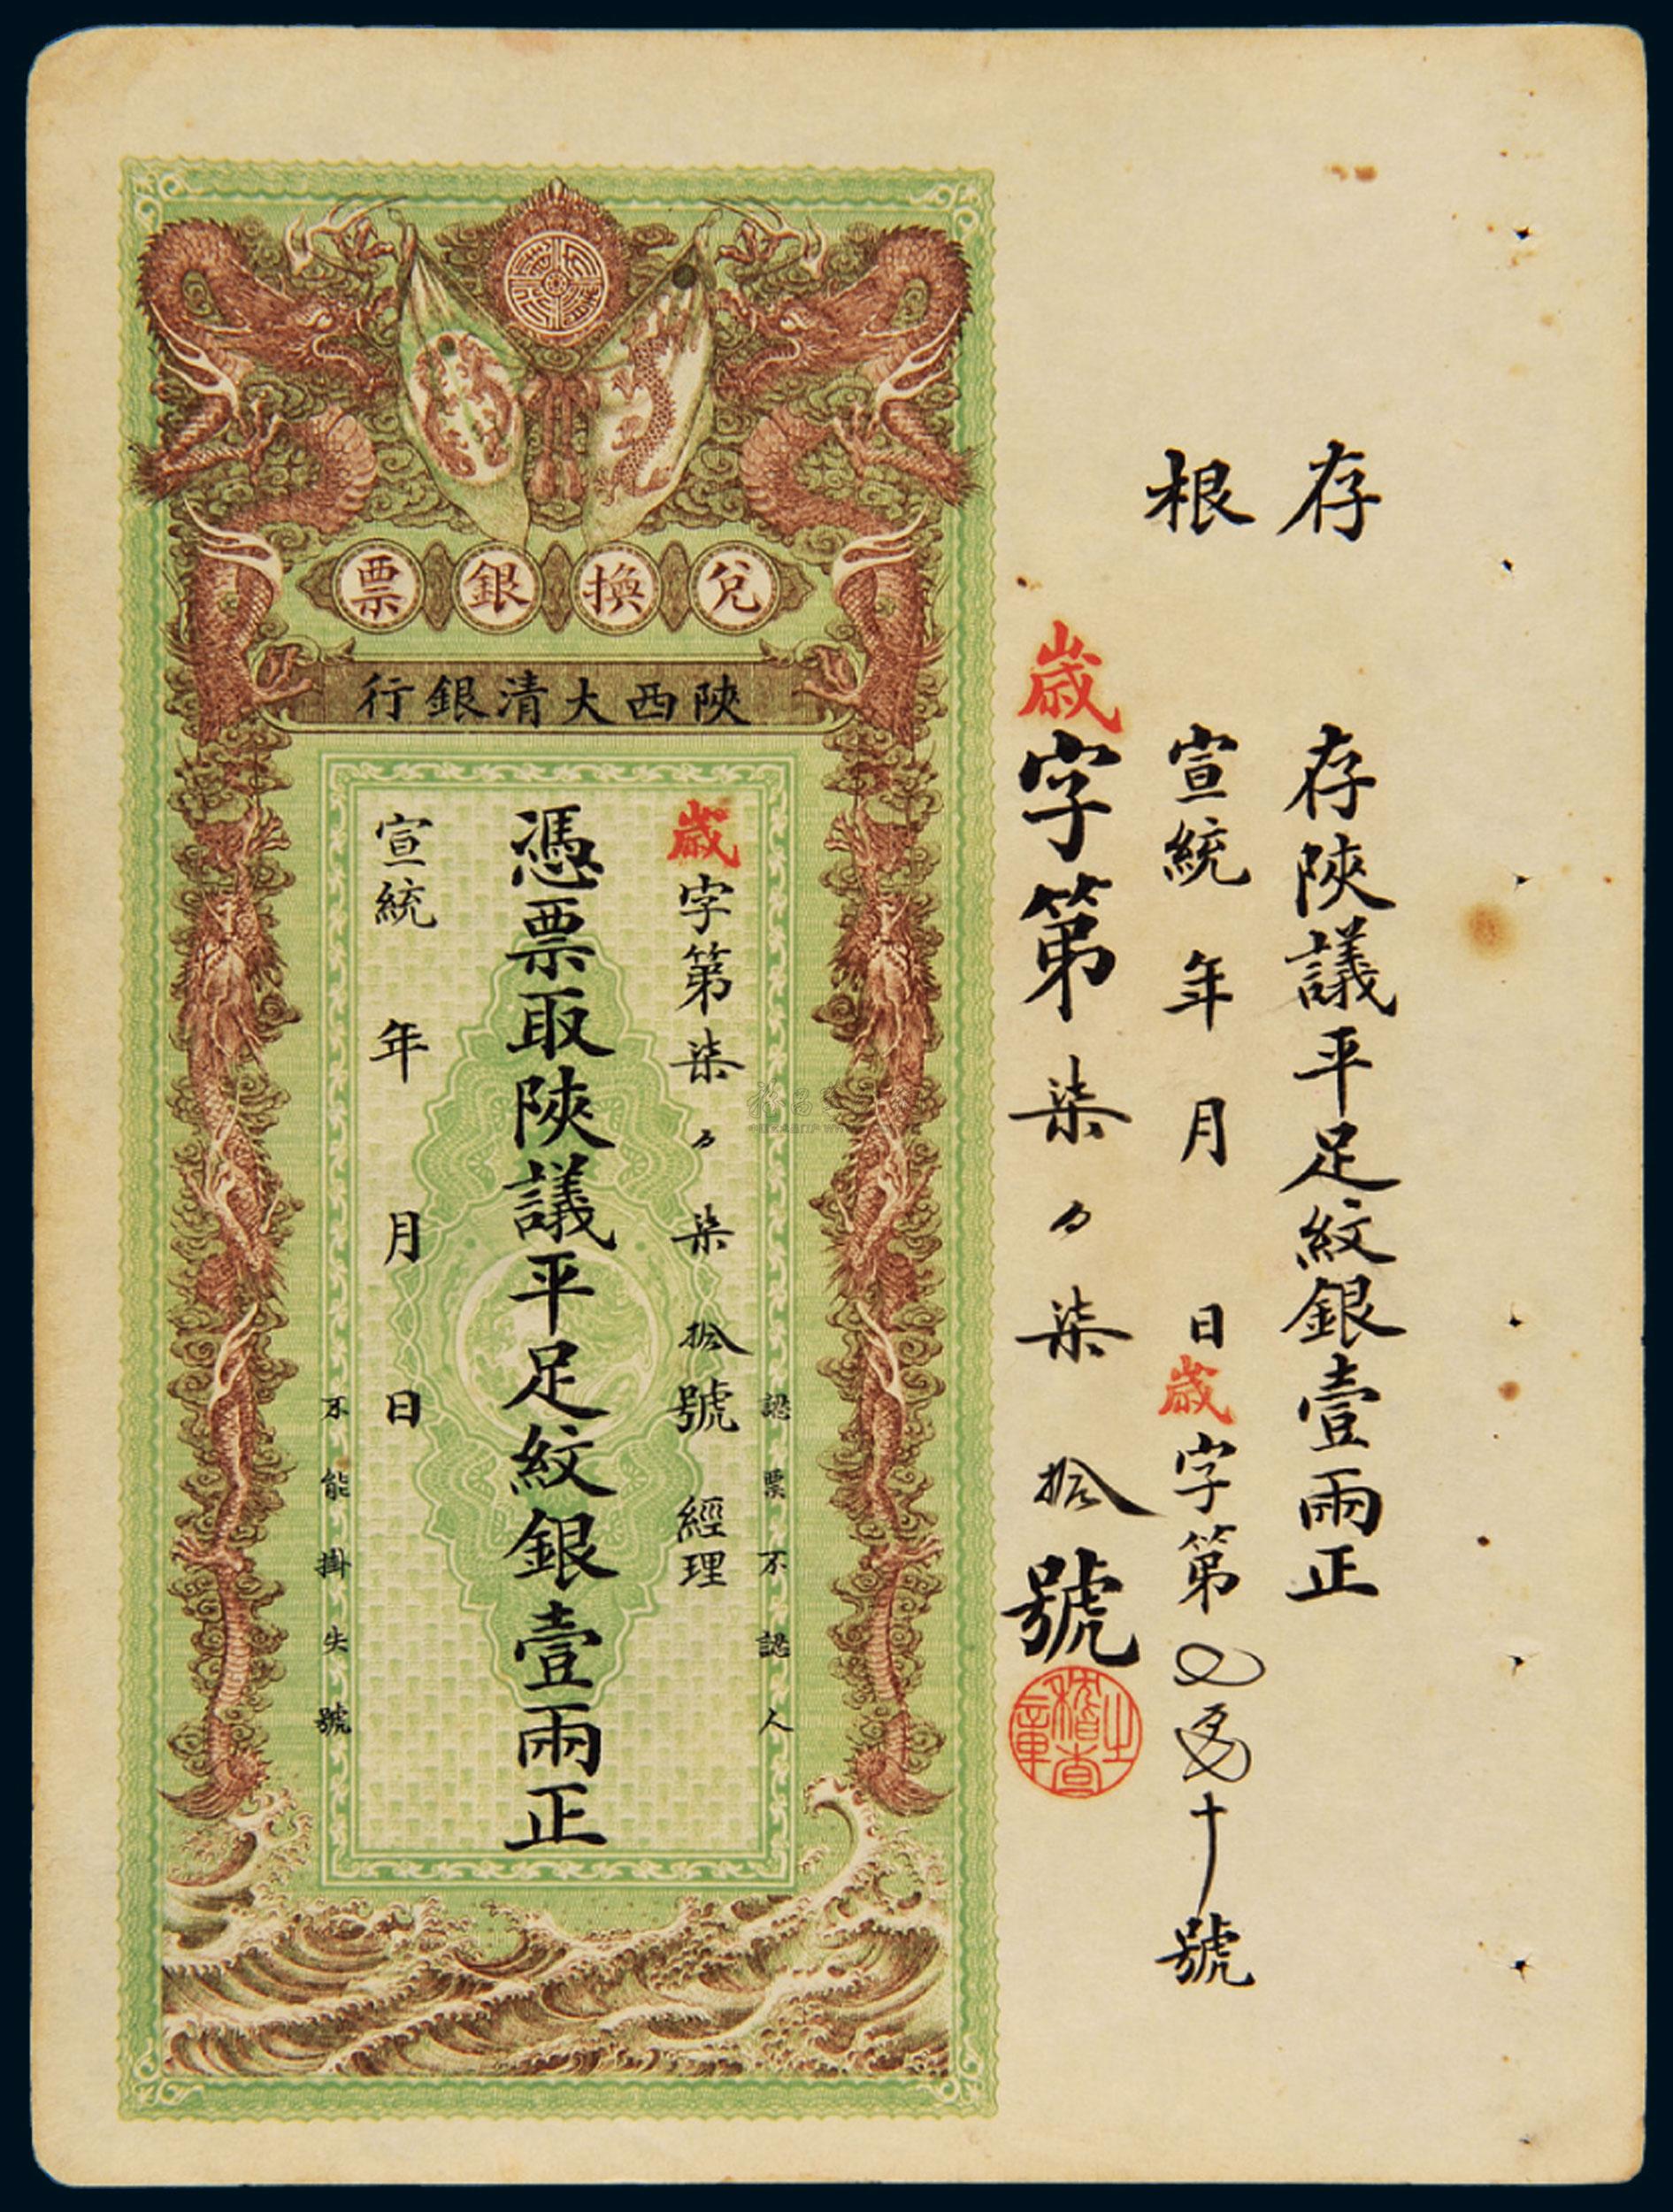 存根
存陝議平足紋銀壹兩正
宣統 年 月 日 歲字第 十號
歲字第柒 柒拾號
稽查之章
兌換銀票
陝西大清銀行
認票不認人
歲字第柒 柒拾號 經理
憑票取陝議平足紋銀壹兩正
宣統 年 月 日
不能掛失號